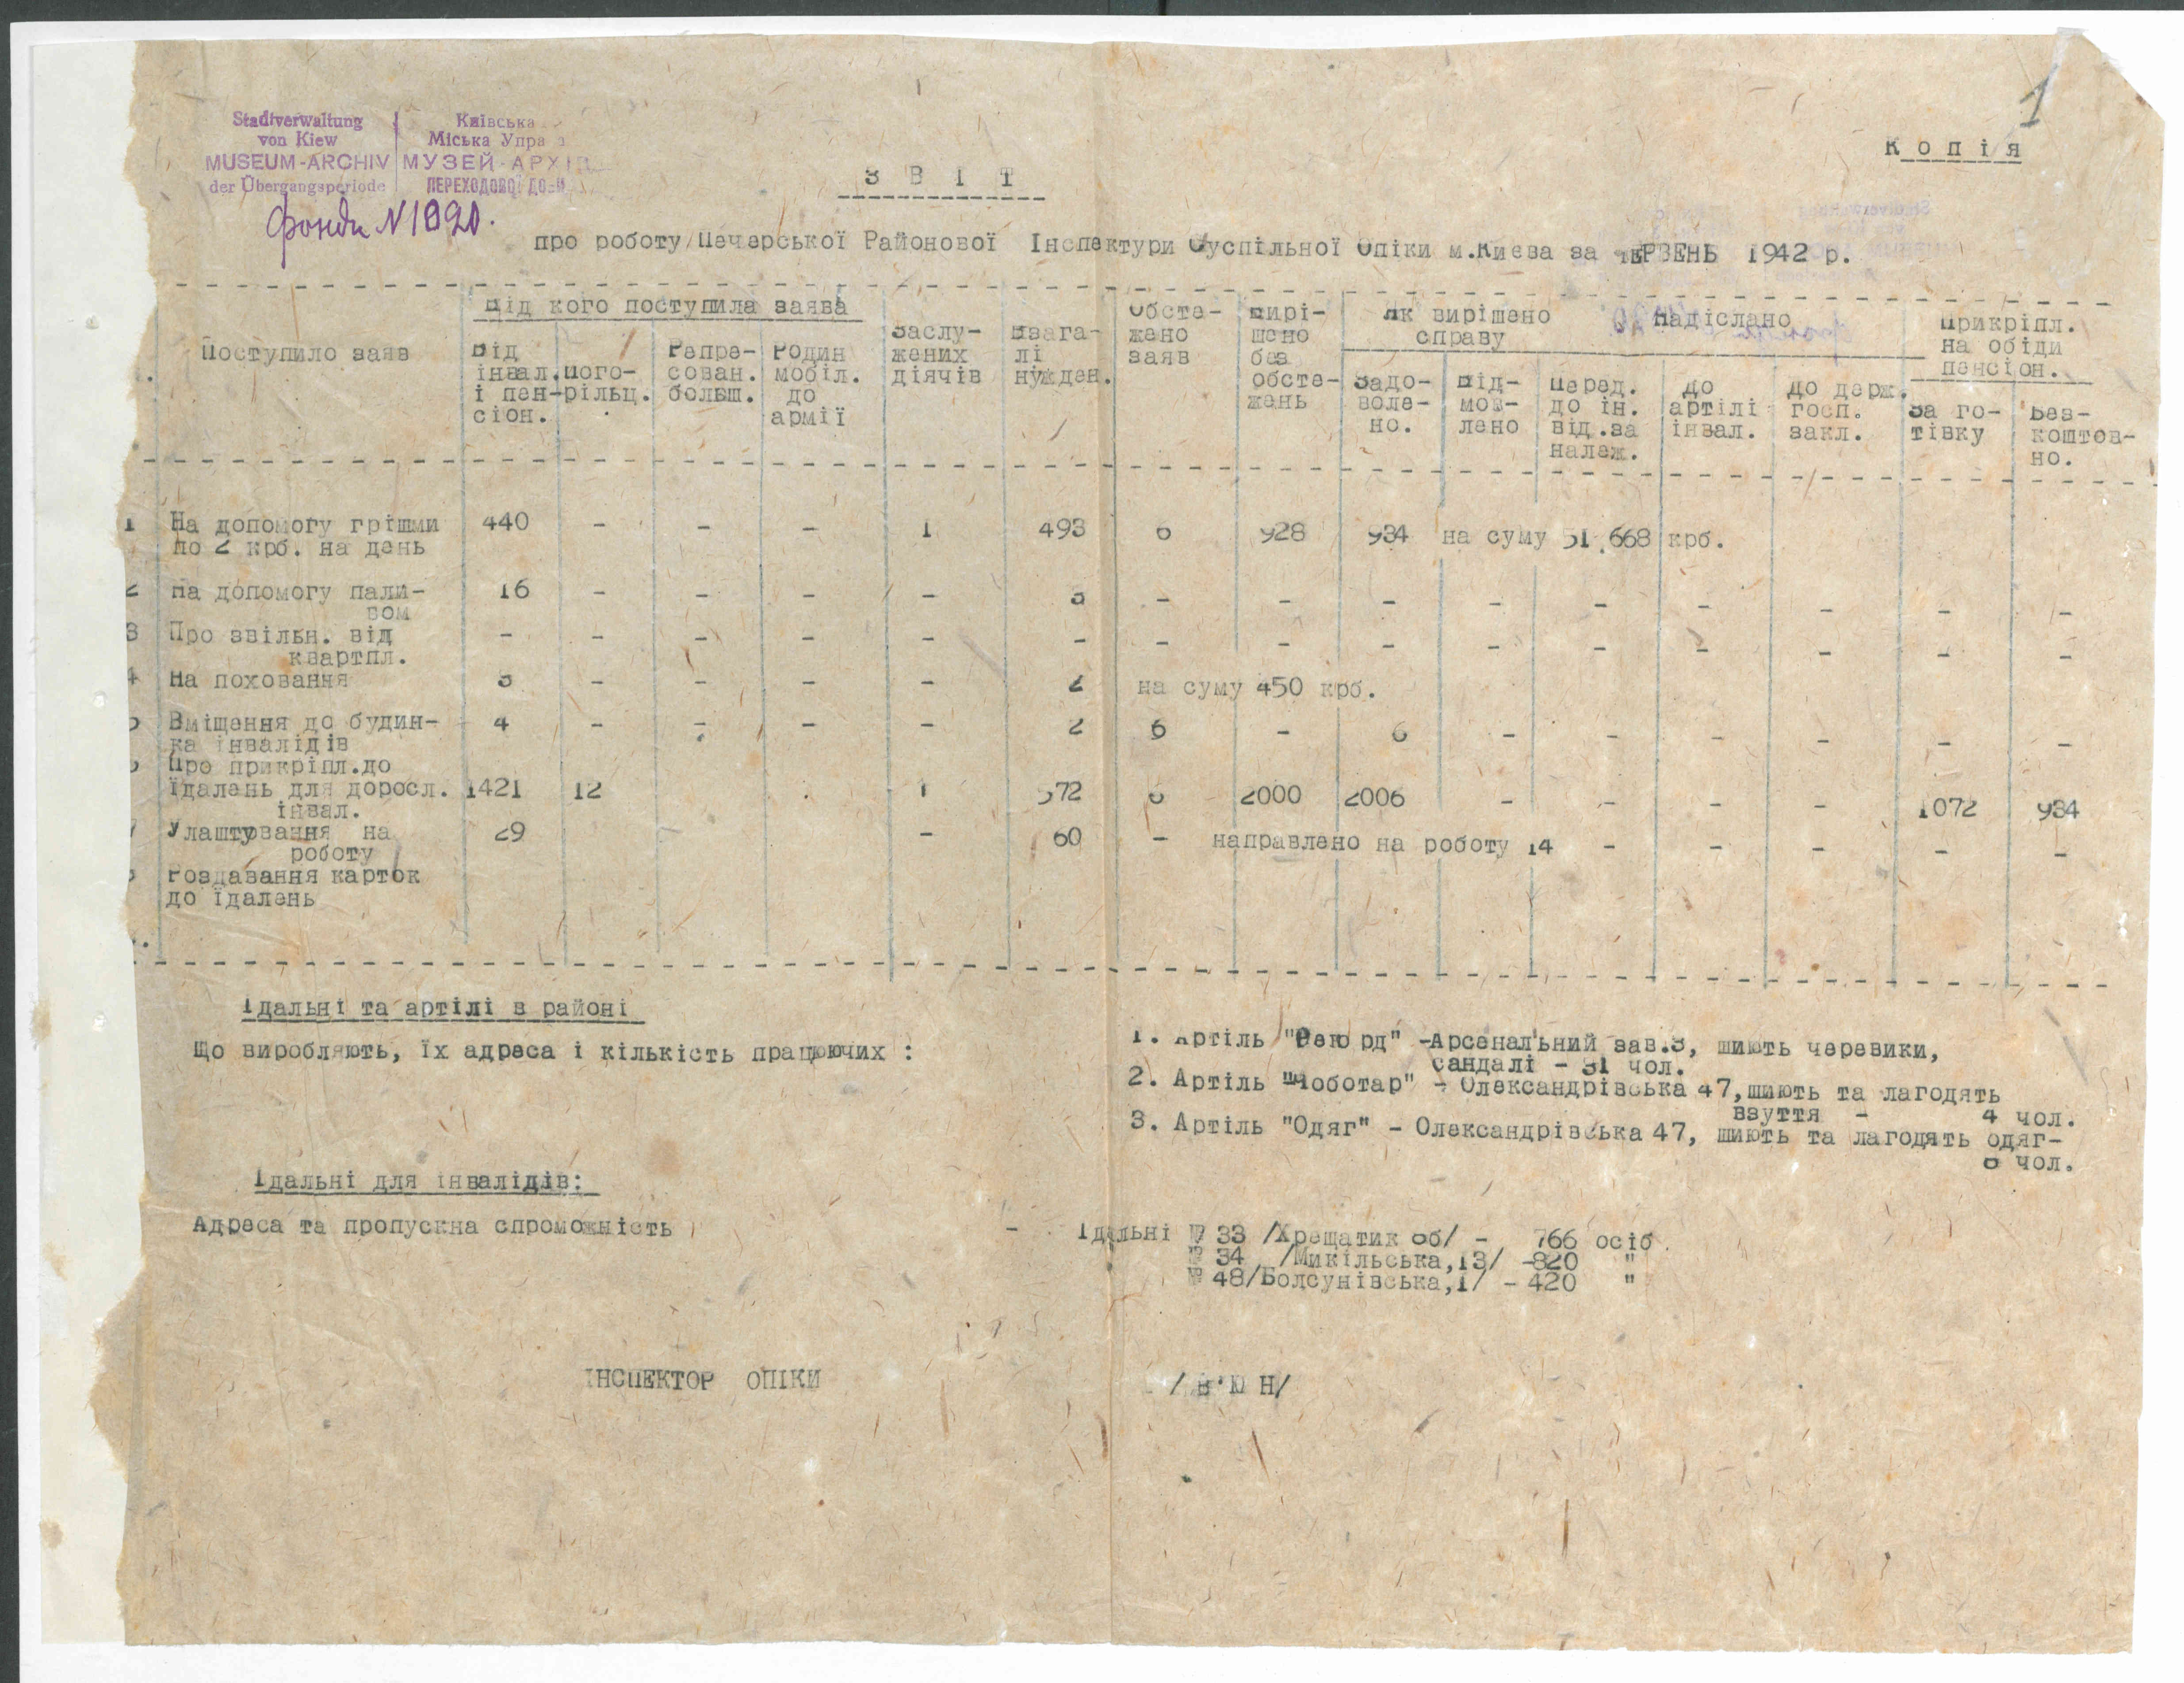 1
Копія
Stadtverwaltung
von Kiew
MUSEUM-ARCHIV
der Übergangsperiode
Київська
Міська Упра
МУЗЕЙ-АРХІВ
ПЕРЕХОДОВОЇ ДО
фонди N 1090.
ЗВІТ
про роботу Печерської Районової Інспектури Суспільної Опіки м.Києва за ЧЕРВЕНЬ 1942 р.
Поступило заяв
Від кого поступила заява
Від інвал. і пен-сіон.
пого-рільц.
Репре-сован. больш.
Родин мобіл. до армії
Заслу-жених діячів
Взага-лі нужден.
Обсте-жено заяв
Вирі-шено без обсте-жень
Як вирішено справу
Задо-воле-но.
Від-мов-лено
Перед. до ін. від.за належ.
Надіслано
до артілі інвал.
до держ. госп. закл.
Прикріпл. на обіди пенсіон.
За го-тівку
Без-коштов-но.
1 На допомогу грішми 440 - - - 1 493 6 928 934 на суму 51.668 крб.
по 2 крб. на день
2 На допомогу пали- 16 - - - - 3 - - - - - - - - -
вом
3 Про звільн. від - - - - - - - - - - - - - - -
квартпл.
4 На поховання 3 - - - - 2 на суму 450 крб.
5 Вміщення до будин- 4 - - - - 2 6 - 6 - - - - - -
ка інвалідів
Про прикріпл.до
їдалень для доросл. 1421 12 1 572 6 2000 2006 - - - - 1072 934
інвал.
Улаштування на 29 - 60 - направлено на роботу 14 - - - - -
роботу
Роздавання карток
до їдалень
Їдальні та артілі в районі
Що виробляють, їх адреса і кількість працюючих :
1. Артіль "Рекорд" -Арсенальний зав.3, шиють черевики,
сандалі - 31 чол.
2. Артіль "Чоботар" - Олександрівська 47, шиють та лагодять
взуття - 4 чол.
3. Артіль "Одяг" - Олександрівська 47, шиють та лагодять одяг-
чол.
Їдальні для інвалідів:
Адреса та пропускна спроможність - Їдальні № 33 /Хрещатик / - 766 осіб.
№ 34 /Микільська,13/ -820 "
№ 48/Болсунівська,1/ - 420 "
ІНСПЕКТОР ОПІКИ /В'Ю Н/